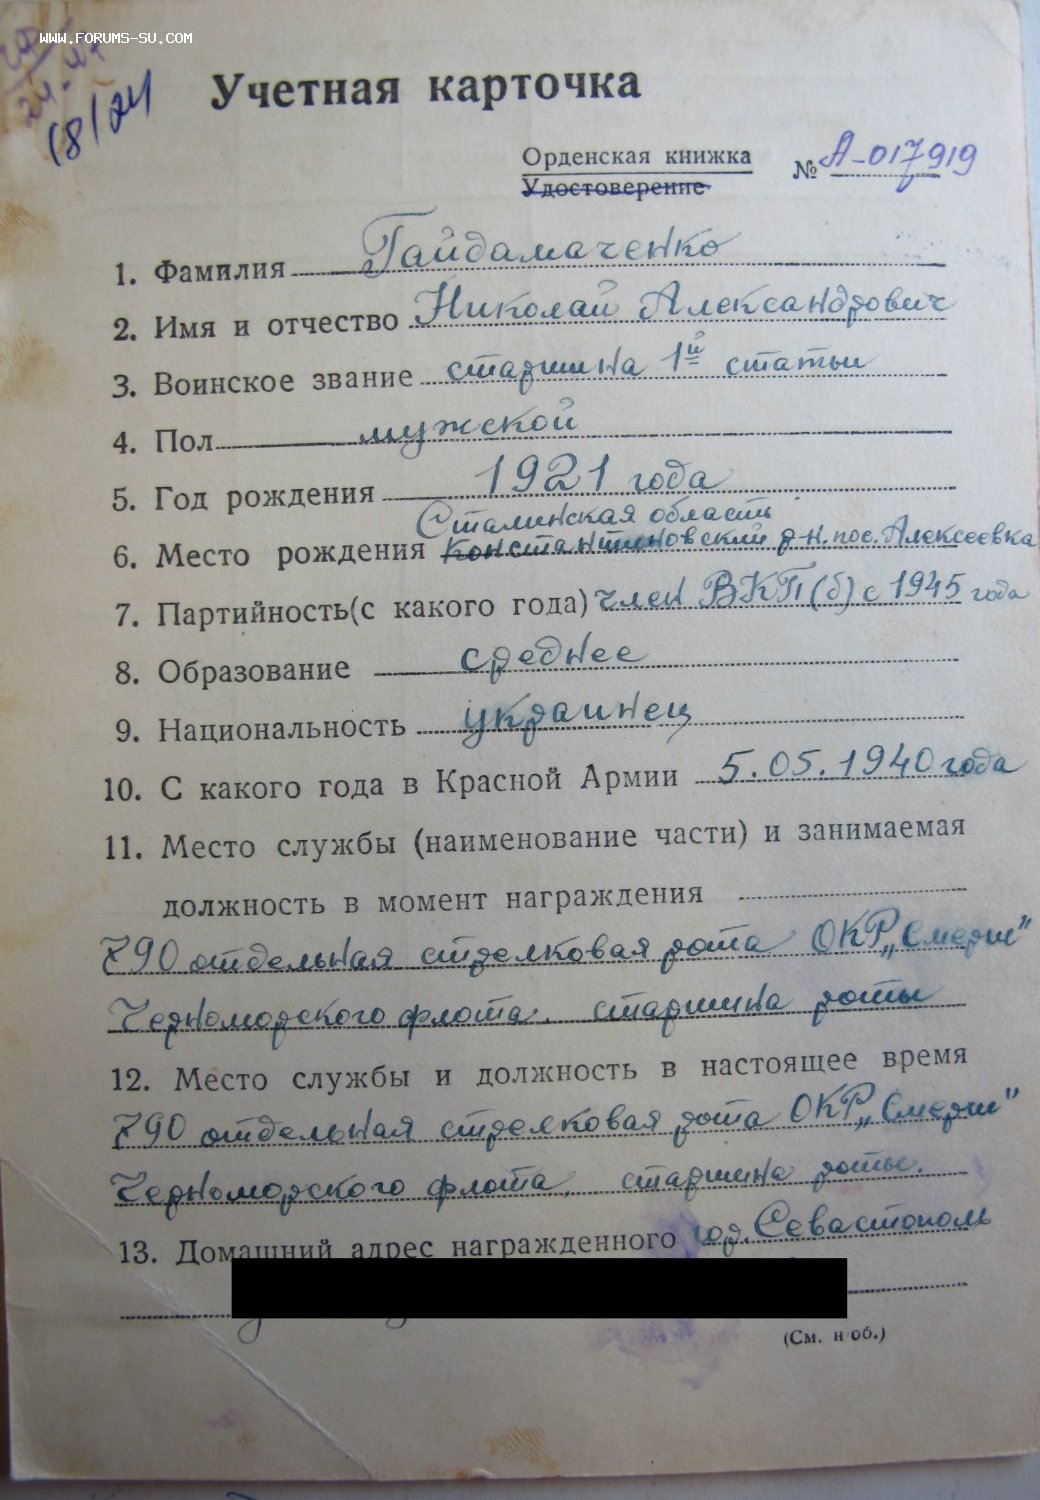 www.forums-su.com
18/24
Учетная карточка
Орденская книжка
Удостоверение
№ А-017919
1. Фамилия Гайдамаченко
2. Имя и отчество Николай Александрович
3. Воинское звание старшина 1й статьи
4. Пол мужской
5. Год рождения 1921 года
Сталинская область
6. Место рождения Константиновский р-н. пос. Алексеевка
7. Партийность (с какого года) член ВКП(б) с 1945 года
8. Образование среднее
9. Национальность украинец
10. С какого года в Красной Армии 5.05.1940 года
11. Место службы (наименование части) и занимаемая
должность в момент награждения
790 отдельная стрелковая рота ОКР „Смерш"
Черноморского флота. старшина роты
12. Место службы и должность в настоящее время
790 отдельная стрелковая рота ОКР „Смерш"
Черноморского флота. старшина роты.
13. Домашний адрес награжденного гор. Севастополь
(См. н об.)